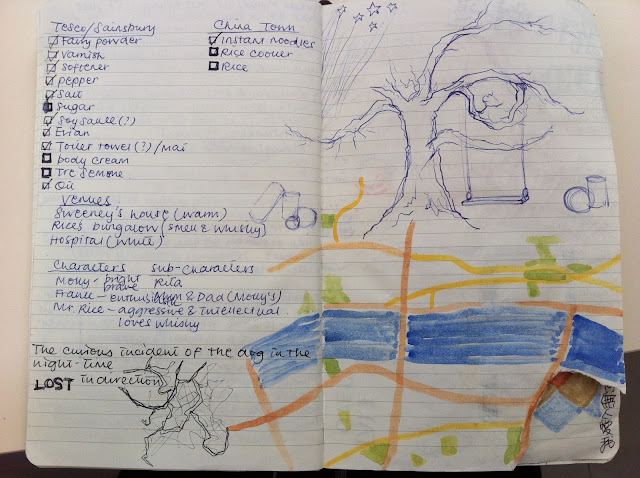 Tesco/Sainsbury
Fairy powder
Varnish
Softener
pepper
Salt
Sugar
Soy sauce (?)
Evian
Toilet towel (?) / mat
Body cream
Tre Semme
Oil
China Town
instant noodles
Rice cooker
Rice
Venues
Sweeney's house (warm)
Rice's bungalow (smell & whisky)
Hospital (white)
Characters sub-characters
Molly - bright brave Rita
Frank - enthusiastic & Dad (Molly's)
Mr Rice - aggressive & intellectual
loves whisky
The curious incident of the dog in the
night-time
LOST in direction